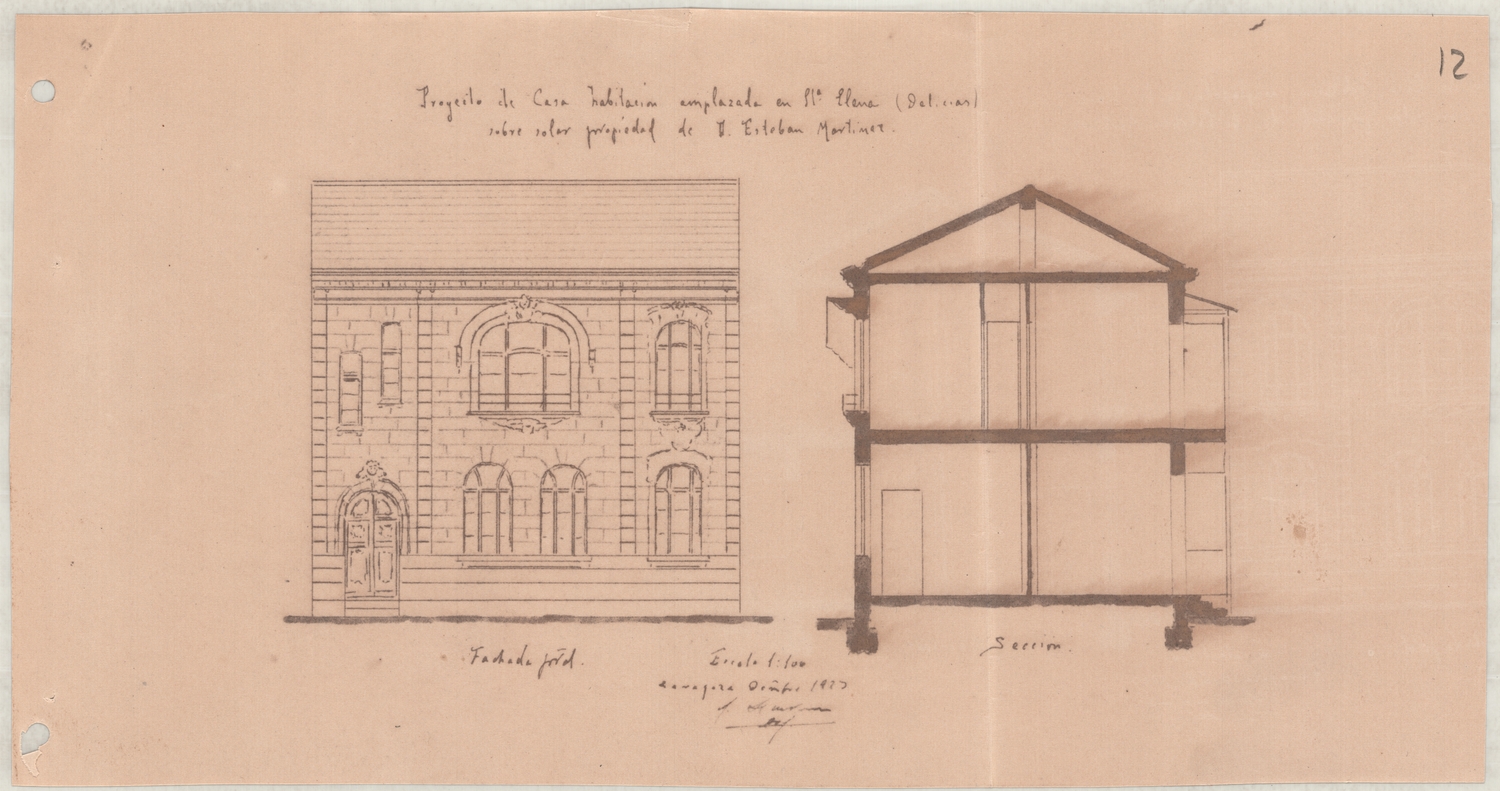 12
Proyecto de Casa habitacion emplazada en Stª Elena (Delicias)
sobre solar propiedad de D. Esteban Martinez.
Fachada
Seccion.
Escala 1:100
Zaragoza 192